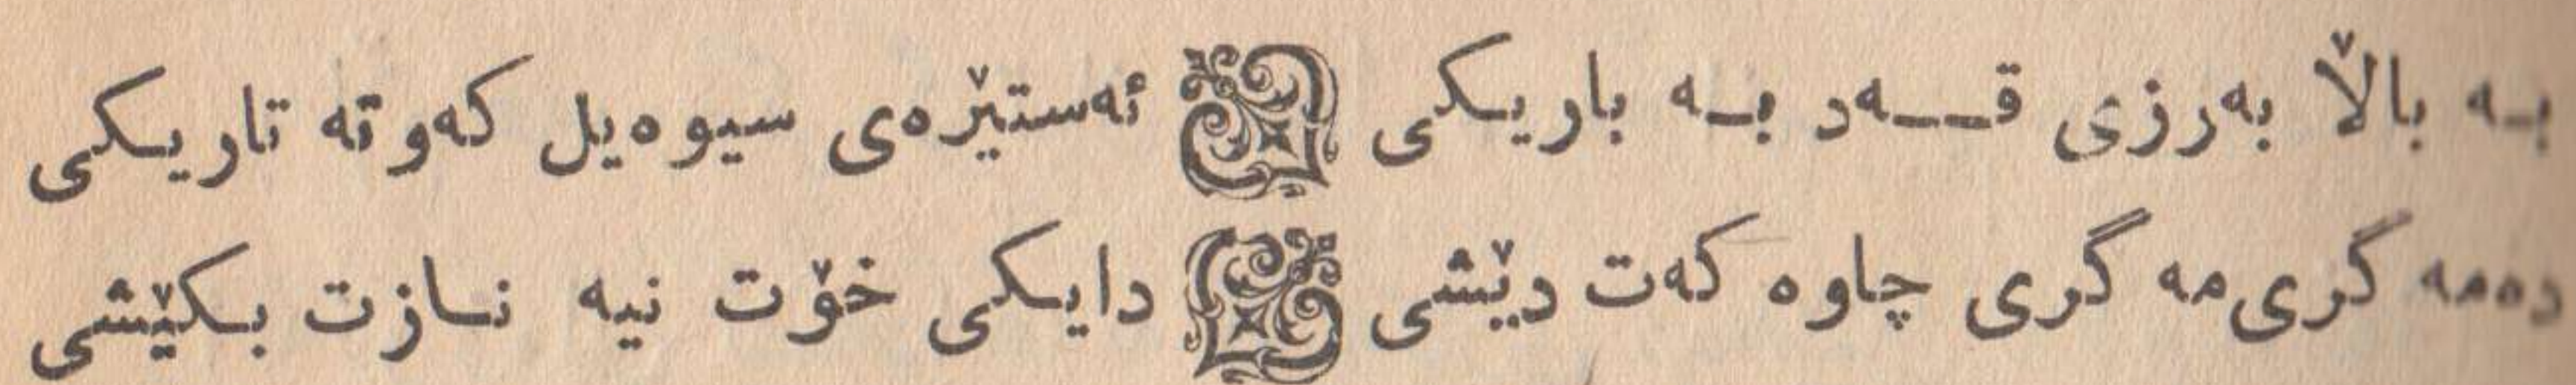 بە باڵا بەرزی قەد بە باریکی ئەستێرەی سیوەیل کەوتە تاریکی
دەمە گری مە گری چاوە کەت دێشی دایکی خۆت نیە نازت بکێشی